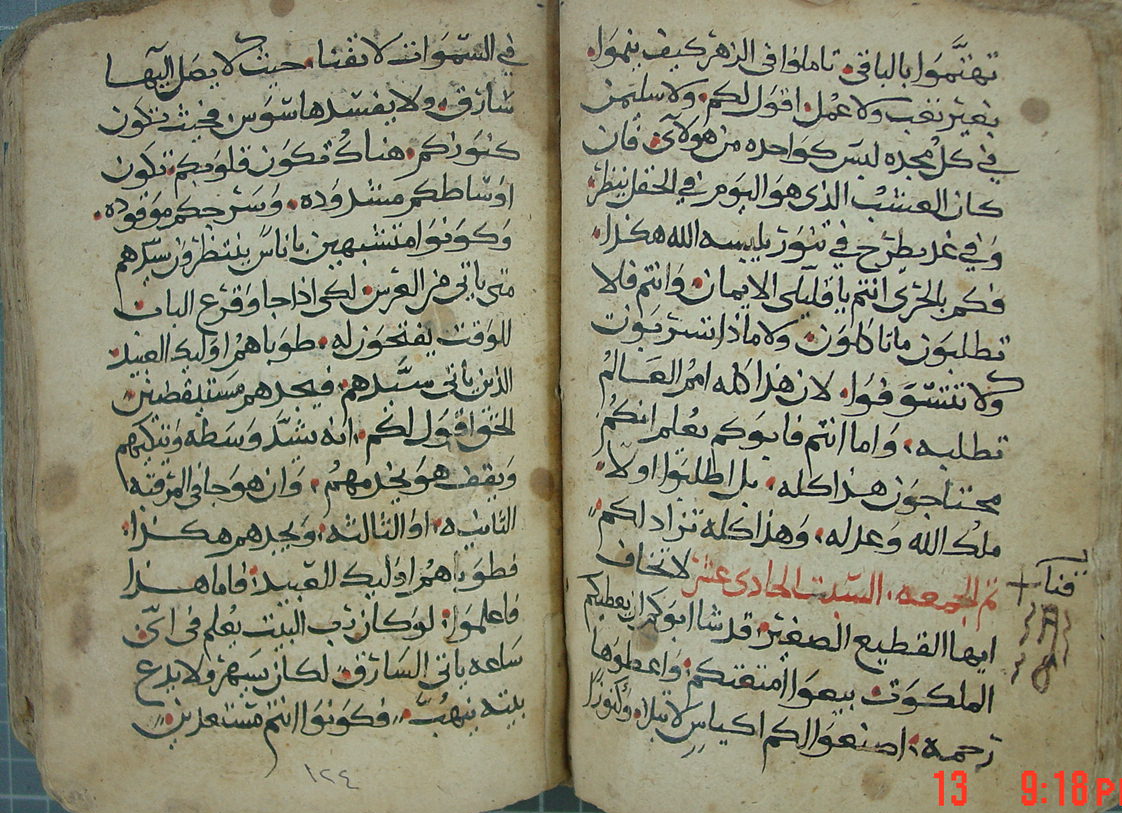 تهتموا بالباقي. تاملوا في الزهر كيف ينموا.
بغير تعب ولا عمل. اقول لكم. ولا سليمن
في كل مجده لبس كواحده من هولاي. فان
كان العشب الذي هو اليوم في الحقل ينظر.
وفي غد يطرح في تنور يلبسه الله هكذا.
فكم بالحري انتم يا قليلي الايمان. وانتم فلا
تطلبون ما تاكلون. ولا ماذا تشربون
ولا تتشوقوا. لان هذا كله امم العالم
تطلبه. واما انتم فابوكم يعلم انكم
محتاجون هذا كله. بل اطلبوا اولا.
ملك الله وعدله. وهذا كله تزاد لكم
تم الجمعه. السبت الحادى عشر لا تخاف
ايها القطيع الصغير. قد شا ابوكم ان يعطيكم
الملكوت بيعوا امتعتكم. واعطوها
رحمه. اصنعوا لكم اكياس لا تبلا. وكنوزا
في السموات لا تفنا. حيث لا يصل اليها
سارق. ولا يفسدها سوس فحيث تكون
كنوزكم. هناك تكون قلوبكم. تكون
اوساطكم مشدوده. وسرجكم موقوده.
وكونوا متشبهين باناس ينتظرون سيدهم
متى ياتي من العرس. لكي اذا جا وقرع الباب
للوقت يفتحون له. طوباهم اوليك العبيد
الذين ياتي سيدهم. فيجدهم مستيقظين
الحق اقول لكم. انه يشد وسطه ويتكيهم
ويقف هو يخدمهم. وان هو جا في المرقبه
الثانيه. او الثالثه. ويجدهم هكذا.
فطوباهم اوليك العبيد. فاما هذا
فاعلموا. لو كان رب البيت يعلم في اي
ساعه ياتي السارق. لكان يسهر ولا يدع
بيته ينهب. فكونوا انتم مستعدين
١٢٤
13 9:18 P